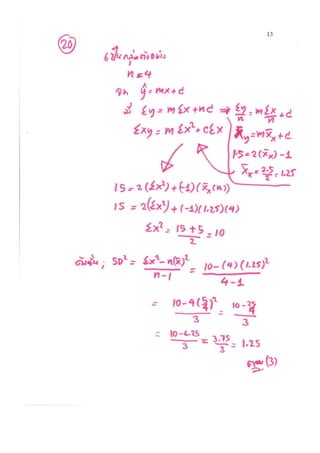 13
(20)
เป็นกลุ่มตัวอย่าง
n = 4
จาก ŷ = mx+c
มี Σy = mΣx + nc ⇒ Σy/n = mΣx/n + c
Σxy = mΣx² + cΣx
x̄y = mx̄x + c
1.5 = 2(x̄x) - 1
x̄x = 2.5/2 = 1.25
15 = 2(Σx²) + (-1)(x̄x(n))
15 = 2(Σx²) + (-1)(1.25)(4)
Σx² = 15 + 5/2 = 10
ดังนั้น ; SD² = Σx² - n(x̄)²/n-1 = 10-(4)(1.25)²/4-1
= 10-4(5/4)²/3 = 10-25/4/3
= 10-6.25/3 = 3.75/3 = 1.25
ตอบ (3)